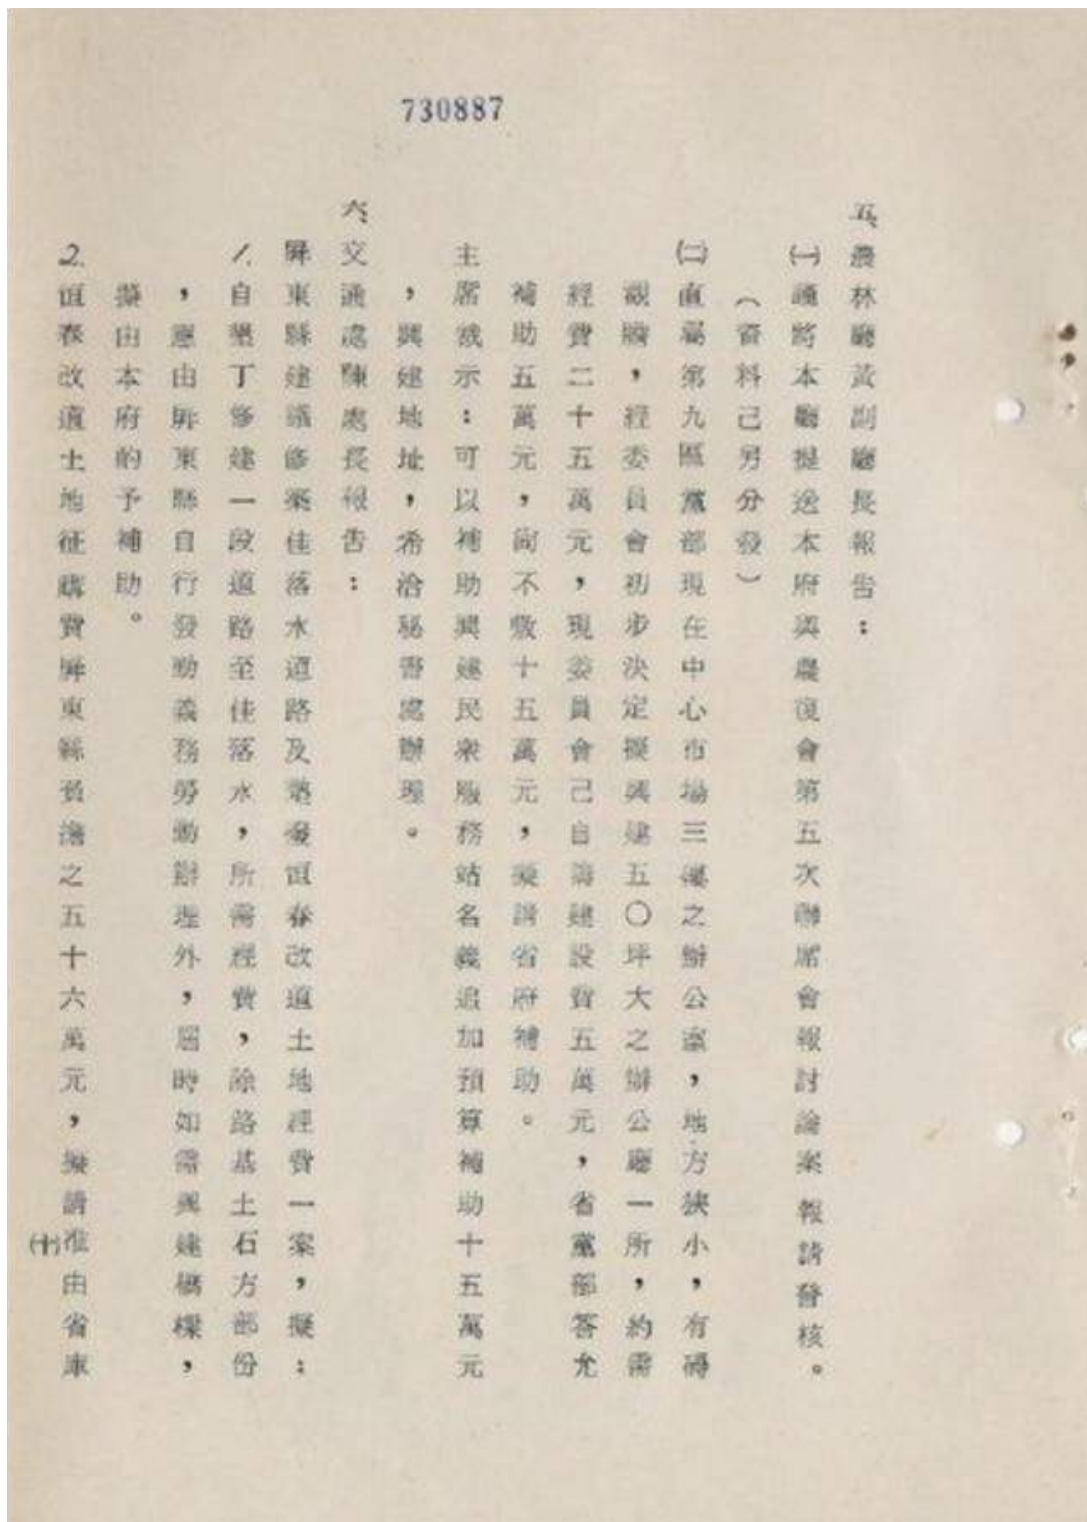 730887
五、農林廳黃副廳長報告：
㈠謹將本廳提送本府與農復會第五次聯席會報討論案報請詧核。
（資料己另分發）
㈡直屬第九區黨部現在中心市場三樓之辦公室，地方狹小，有碍
觀瞻，經委員會初步決定擬興建五〇坪大之辦公廳一所，約需
經費二十五萬元，現委員會己自籌建設費五萬元，省黨部答允
補助五萬元，尙不敷十五萬元，擬請省府補助。
主席裁示：可以補助興建民衆服務站名義追加預算補助十五萬元
，興建地址，希洽秘書處辦理。
六、交通處陳處長報告：
屏東縣建議修築佳落水道路及墊發恒春改道土地經費一案，擬：
1.自墾丁修建一段道路至佳落水，所需經費，除路基土石方部份
，應由屏東縣自行發動義務勞動辦理外，屆時如需興建橋樑，
擬由本府酌予補助。
2.恒春改道土地征購費屏東縣負擔之五十六萬元，擬請准由省庫
㈩